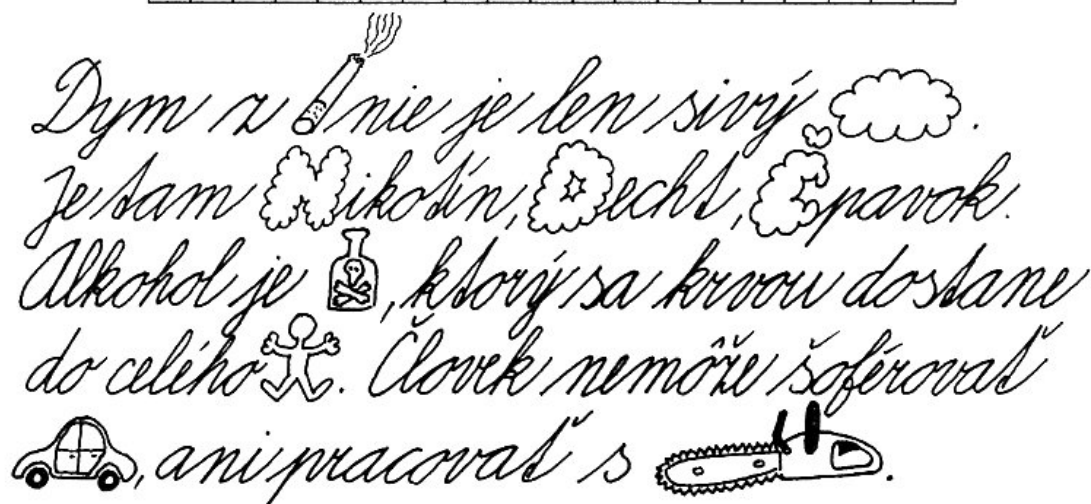 Dym z nie je len sivý .
Je tam Nikotín, Decht, Čpavok.
Alkohol je , ktorý sa krvou dostane
do celého . Človek nemôže šoférovať
, ani pracovať s .